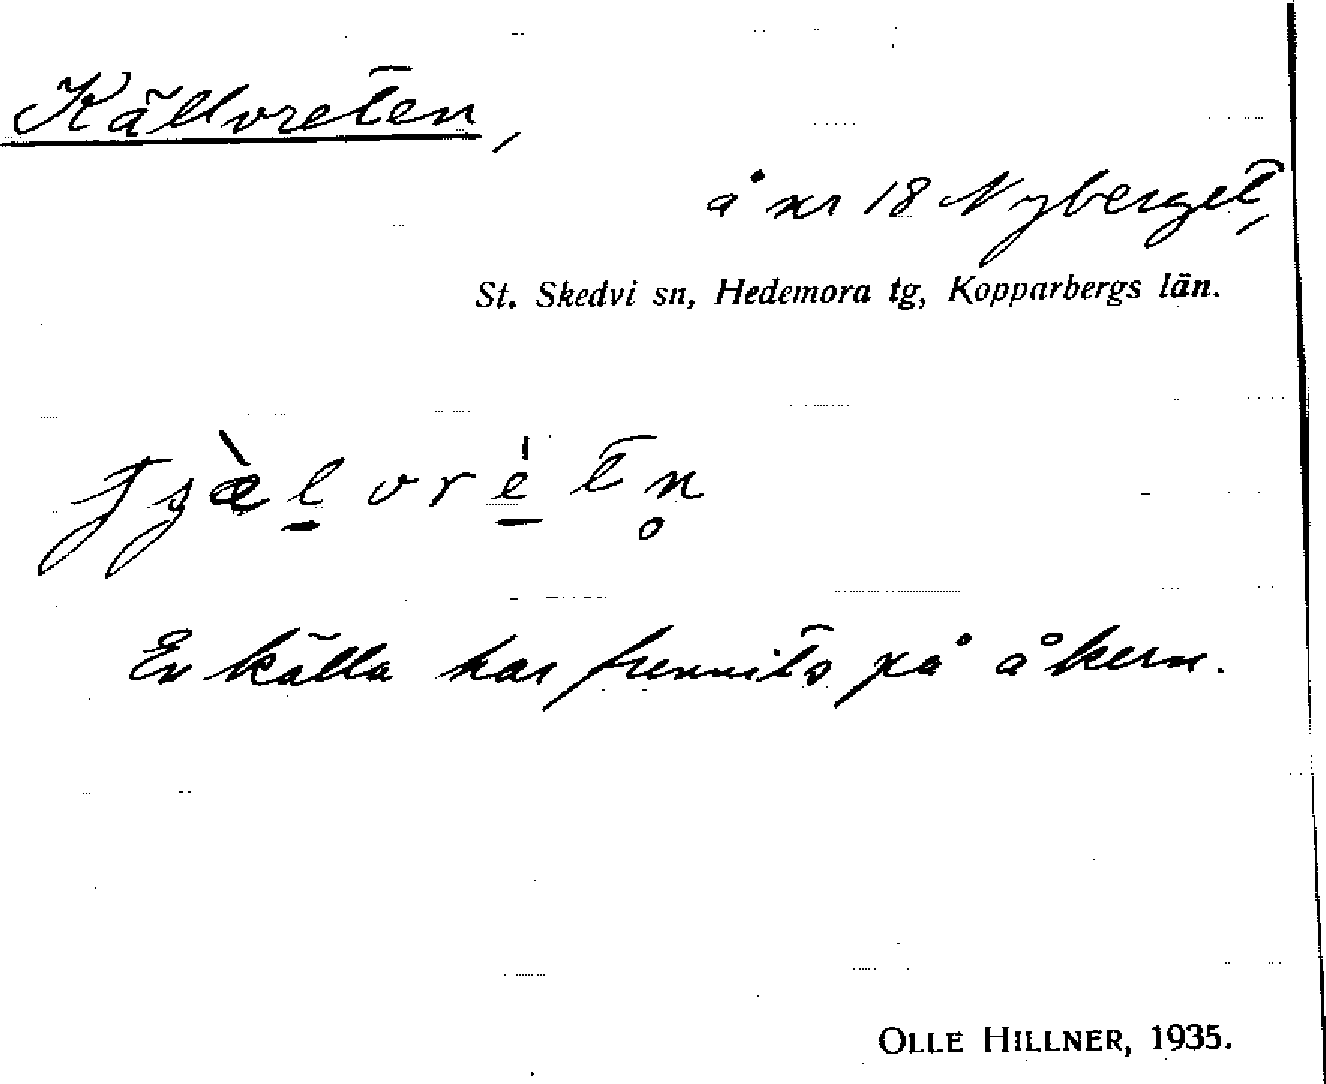 Källvreten,
å nr 18 Nyberget,
St. Skedvi sn, Hedemora tg, Kopparbergs län.
En källa har funnits på åkern.
OLLE HILLNER, 1935.